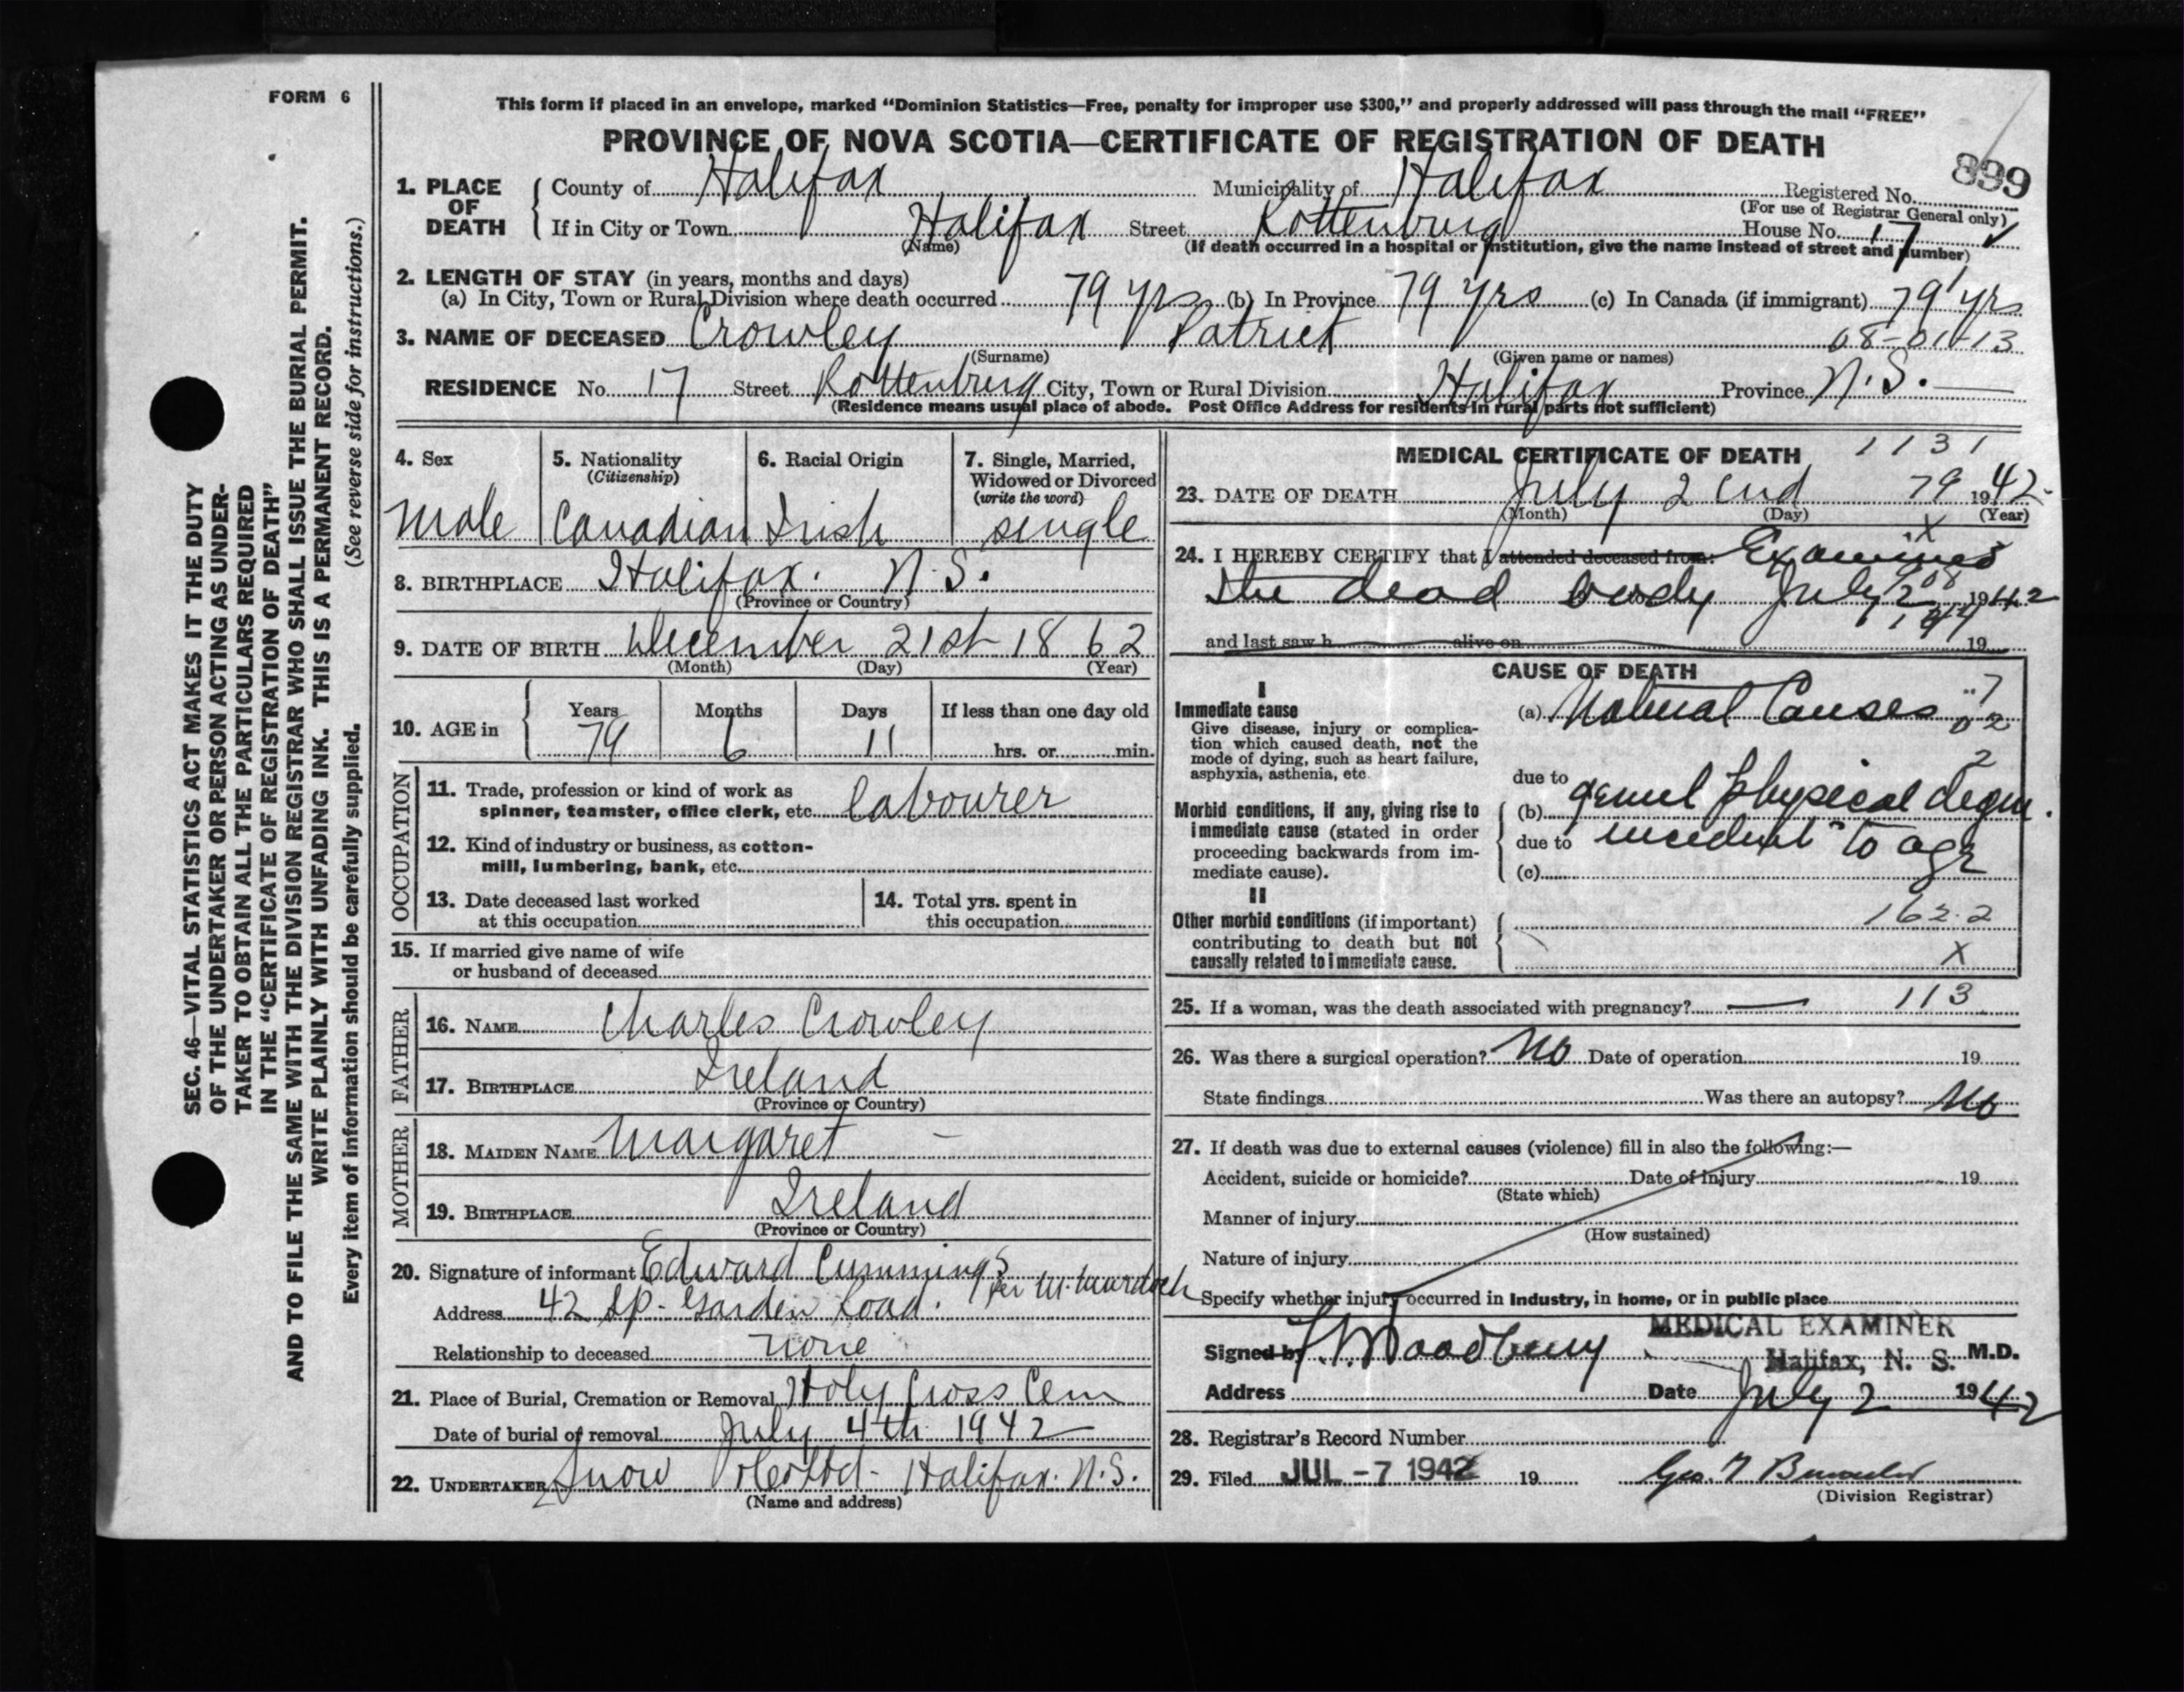 FORM 6
This form if placed in an envelope, marked “Dominion Statistics—Free, penalty for improper use $300,” and properly addressed will pass through the mail “FREE”
PROVINCE OF NOVA SCOTIA—CERTIFICATE OF REGISTRATION OF DEATH
899
1. PLACE OF DEATH County of Halifax Municipality of Halifax Registered No.
(For use of Registrar General only)
If in City or Town Halifax Street Rottenburg House No. 17 ✓
(Name) (If death occurred in a hospital or institution, give the name instead of street and number)
2. LENGTH OF STAY (in years, months and days)
(a) In City, Town or Rural Division where death occurred 79 yrs (b) In Province 79 yrs (c) In Canada (if immigrant) 79 yrs
3. NAME OF DECEASED Crowley Patrick 08-01-13
(Surname) (Given name or names)
RESIDENCE No. 17 Street Rottenburg City, Town or Rural Division Halifax Province N.S.
(Residence means usual place of abode. Post Office Address for residents in rural parts not sufficient)
4. Sex 5. Nationality 6. Racial Origin 7. Single, Married,
(Citizenship) Widowed or Divorced
(write the word)
Male Canadian Irish single
8. BIRTHPLACE Halifax. N.S.
(Province or Country)
9. DATE OF BIRTH December 21st 1862
(Month) (Day) (Year)
10. AGE in Years Months Days If less than one day old
79 6 11 hrs. or min.
OCCUPATION
11. Trade, profession or kind of work as
spinner, teamster, office clerk, etc. labourer
12. Kind of industry or business, as cotton-
mill, lumbering, bank, etc.
13. Date deceased last worked
at this occupation
14. Total yrs. spent in
this occupation
15. If married give name of wife
or husband of deceased
FATHER
16. NAME Charles Crowley
17. BIRTHPLACE Ireland
(Province or Country)
MOTHER
18. MAIDEN NAME Margaret —
19. BIRTHPLACE Ireland
(Province or Country)
20. Signature of informant Edward Cummings
per M. Murdoch
Address 42 Sp. Garden Road.
Relationship to deceased none
21. Place of Burial, Cremation or Removal Holy Cross Cem
Date of burial or removal July 4th 1942
22. UNDERTAKER Snow & Co Ltd - Halifax. N.S.
(Name and address)
MEDICAL CERTIFICATE OF DEATH 1131
23. DATE OF DEATH July 2nd 79 1942
(Month) (Day) (Year)
X
24. I HEREBY CERTIFY that I attended deceased from: Examined
the dead body July 2 1942
and last saw h alive on 19
CAUSE OF DEATH
I
Immediate cause
Give disease, injury or complica-
tion which caused death, not the
mode of dying, such as heart failure,
asphyxia, asthenia, etc.
(a) Natural Causes
02
2
due to
Morbid conditions, if any, giving rise to
immediate cause (stated in order
proceeding backwards from im-
mediate cause).
(b) physical degen.
due to incident to age
(c)
II
Other morbid conditions (if important)
contributing to death but not
causally related to immediate cause.
162.2
X
25. If a woman, was the death associated with pregnancy? — 113
26. Was there a surgical operation? No Date of operation 19
State findings Was there an autopsy? No
27. If death was due to external causes (violence) fill in also the following:—
Accident, suicide or homicide? Date of injury 19
(State which)
Manner of injury
(How sustained)
Nature of injury
Specify whether injury occurred in industry, in home, or in public place
MEDICAL EXAMINER
Signed by Woodbury Halifax, N. S. M.D.
Address Date July 2 1942
28. Registrar's Record Number
29. Filed JUL -7 1942 19
(Division Registrar)
SEC. 46—VITAL STATISTICS ACT MAKES IT THE DUTY
OF THE UNDERTAKER OR PERSON ACTING AS UNDER-
TAKER TO OBTAIN ALL THE PARTICULARS REQUIRED
IN THE “CERTIFICATE OF REGISTRATION OF DEATH”
AND TO FILE THE SAME WITH THE DIVISION REGISTRAR WHO SHALL ISSUE THE BURIAL PERMIT.
WRITE PLAINLY WITH UNFADING INK. THIS IS A PERMANENT RECORD.
Every item of information should be carefully supplied. (See reverse side for instructions.)